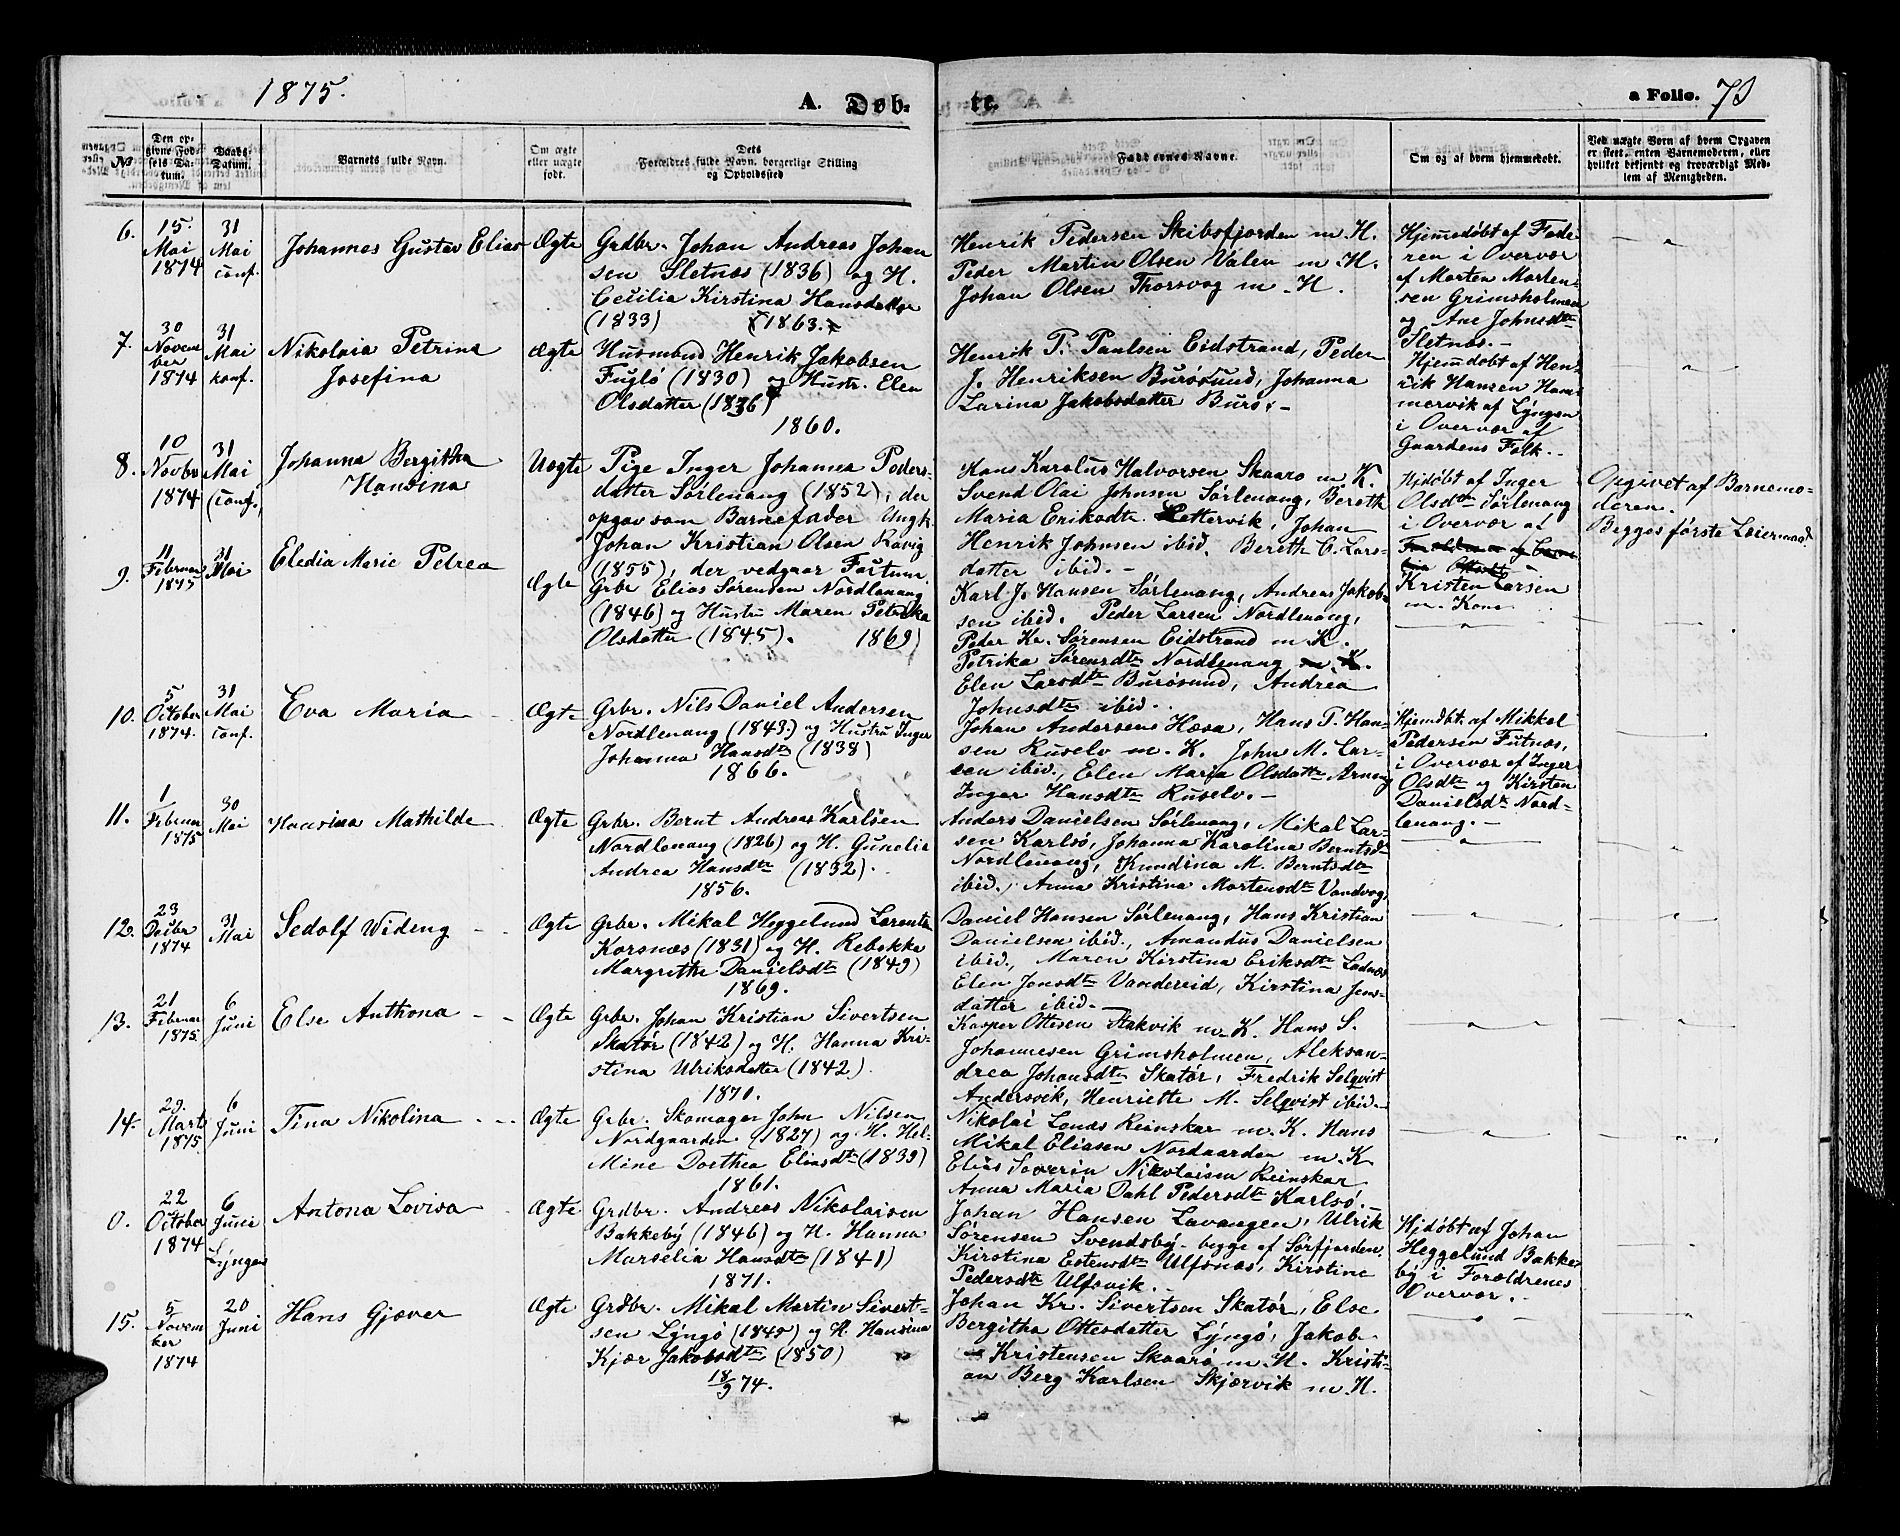 1875.
A. Døb-
te.
a Folio. 73
No
Den op-
givne Fød-
sels Da-
tum.
Daabs-
Datum.
Barnets fulde Navn.
Om ægte
eller uægte
født.
Dets
Forældres fulde Navn, borgerlige Stilling
og Opholdssted
Faddernes Navne.
Om og af hvem hjemmedøbt.
Ved uægte Børn af hvem Opgaven
er skeet, enten Barnemoderen, eller
hvilket bekjendt og troværdigt Med-
lem af Menigheden.
6.
15.
Mai
1874
31
Mai
conf.
Johannes Gustav Elias
Ægte
Grdbr. Johan Andreas Johan
sen Sletnæs (1836) og H.
Cecilia Kirstina Hansdatter
(1833) 1863.
Henrik Pedersen Skibsfjorden m. H.
Peder Martin Olsen Valen m. H.
Johan Olsen Thorsvog m. H.
Hjemedøbt af Fade-
ren i Overvær
af Morten Morten-
sen Grimsholmen
og Ane Johnsdtr
Sletnæs.-
7.
30
Novem
ber
1874
31
Mai
konf.
Nikolaia Petrina
Josefina
Ægte
Husmand Henrik Jakobsen
Fuglø (1830) og Hustr. Elen
Olsdatter (1836)
1860.
Henrik P. Paulsen Eidstrand, Peder
J. Henriksen Burøsund, Johanna
Larina Jakobsdatter Burø.-
Hjemdøbt af Hen-
rik Hansen Ham-
mervik af Lyngen
i Overvær af
Gaardens Folk.
8.
10
Novbr
1874
31
Mai
(conf.)
Johanna Bergitha
Hansina
Uægte
Pige Inger Johanna Peders-
datter Sørlenang (1852), der
opgav som Barnefader Ungk.
Johan Kristian Olsen Ravig
(1855), der vedgaar Factum.
Hans Karolus Halvorsen Skaarø m. K.
Svend Olai Johnsen Sørlenang, Bereth
Maria Eriksdtr. Lettervik, Johan
Henrik Johnsen ibid. Bereth C. Lars-
datter ibid.-
Hjdøbt af Inger
Olsdtr Sørlenang
i Overvær af
Kristen Larsen
m. Kone
Opgivet af Barnemo-
deren.
Begges første Leiermaal.
9.
11
Februar
1875
31
Mai
Eledia Marie Petrea
Ægte
Grbr Elias Sørensen Nordlenang
(1846) og Hustru Maren Petrikka
Olsdatter (1845). 1869)
Karl J. Hansen Sørlenang, Andreas Jakob-
sen ibid. Peder Larsen Nordlenang,
Peder Kr. Sørensen Eidstrand m. K.
Petrika Sørensdtr Nordlenang
Elen Larsdtr Burøsund, Andrea
Johnsdtr ibid.
10.
5
October
1874.
31
Mai
conf.
Eva Maria
Ægte
Grbr. Nils Daniel Andersen
Nordlenang (1843.) og Hustru Inger
Johanna Hansdtr (1838)
1866.
Johan Andersen Hæsa, Hans P. Han-
sen Ruselv m. K. John M. Lar-
sen ibid., Elen Maria Olsdatter Arnang
Inger Hansdtr Ruselv.-
Hjemdøbt. af Mikkel
Pedersen Futnæs,
i Overvær af Inger
Olsdtr og Kirsten
Danielsdtr Nord-
lenang.-
11.
1
Februar
1875
30
Mai
Hansina Mathilde
Ægte
Grbr. Bernt Andreas Karlsen
Nordlenang (1826) og H. Gunelia
Andrea Hansdtr (1832).
1856.
Anders Danielsen Sørlenang, Mikal Lar-
sen Karlsø, Johanna Karolina Berntsdtr
Nordlenang, Kundina M. Berntsdtr
ibid., Anna Kristina Mortensdtr Vandvog
12.
23
Decbr
1874
31
Mai
Sedolf Wideng
Ægte
Grbr. Mikal Heggelund Lorentz
Korsnæs (1831) og H. Rebekka
Margrethe Danielsdtr (1849)
1869.
Daniel Hansen Sørlenang, Hans Kristian
Danielsen ibid., Amandus Danielsen
ibid., Maren Kirstina Eriksdtr Ladnæs
Elen Jensdtr Vandereid, Kirstina Jens-
datter ibid.-
13.
21
Februar
1875.
6
Juni
Else Anthona
Ægte
Grbr. Johan Kristian Sivertsen
Skatør (1842) og H. Hanna Kri-
stina Ulriksdatter (1842.)
1870.
Kasper Ottesen Stakvik m. K. Hans S.
Johannesen Grimsholmen, Aleksan-
drea Johansdtr Skatør, Fredrik Selqvist
Andersvik, Henriette M. Selqvist ibid.-
14.
29.
Marts
1875
6
Juni
Tina Nikolina
Ægte
Grbr. Skomager John Nilsen
Nordgaarden (1827) og H. Hel-
mine Dorthea Eliasdtr (1839)
1861.
Nikolai Lonæs Reinskar m. K. Hans
Mikal Eliasen Nordgaarden m. K
Elias Severin Nikolaisen Reinskar
Anna Maria Dahl Pedersdtr Karlsø.-
0.
22
October
1874
6
Juni
Lyngen
Antona Lovisa
Ægte
Grdbr. Andreas Nikolaisen
Bakkeby (1846) og H. Hanna
Marselia Hansdtr (1841)
1871.
Johan Hansen Lavangen, Ulrik
Sørensen Svendsby- begge af Sørfjorden.
Kirstina Estensdtr Ulfsnæs, Kirstine
Pedersdtr Ulfsvik.-
Hjdøbt af Johan
Heggelund Bakke-
by i Forældrenes
Overvær.-
15.
5
Novem
ber
1874
20
Juni
Hans Gjæver
Ægte
Grdbr. Mikal Martin Sivert-
sen Lyngø (1848) og H. Hansina
Kjær Jakobsdtr (1850)
18/9 74.
Johan Kr. Sivertsen Skatør, Else
Bergitha Ottesdatter Lyngø, Jakob
Kristensen Skaarø m. H. Kristi-
an Berg Karlsen Skjærvik m. H.